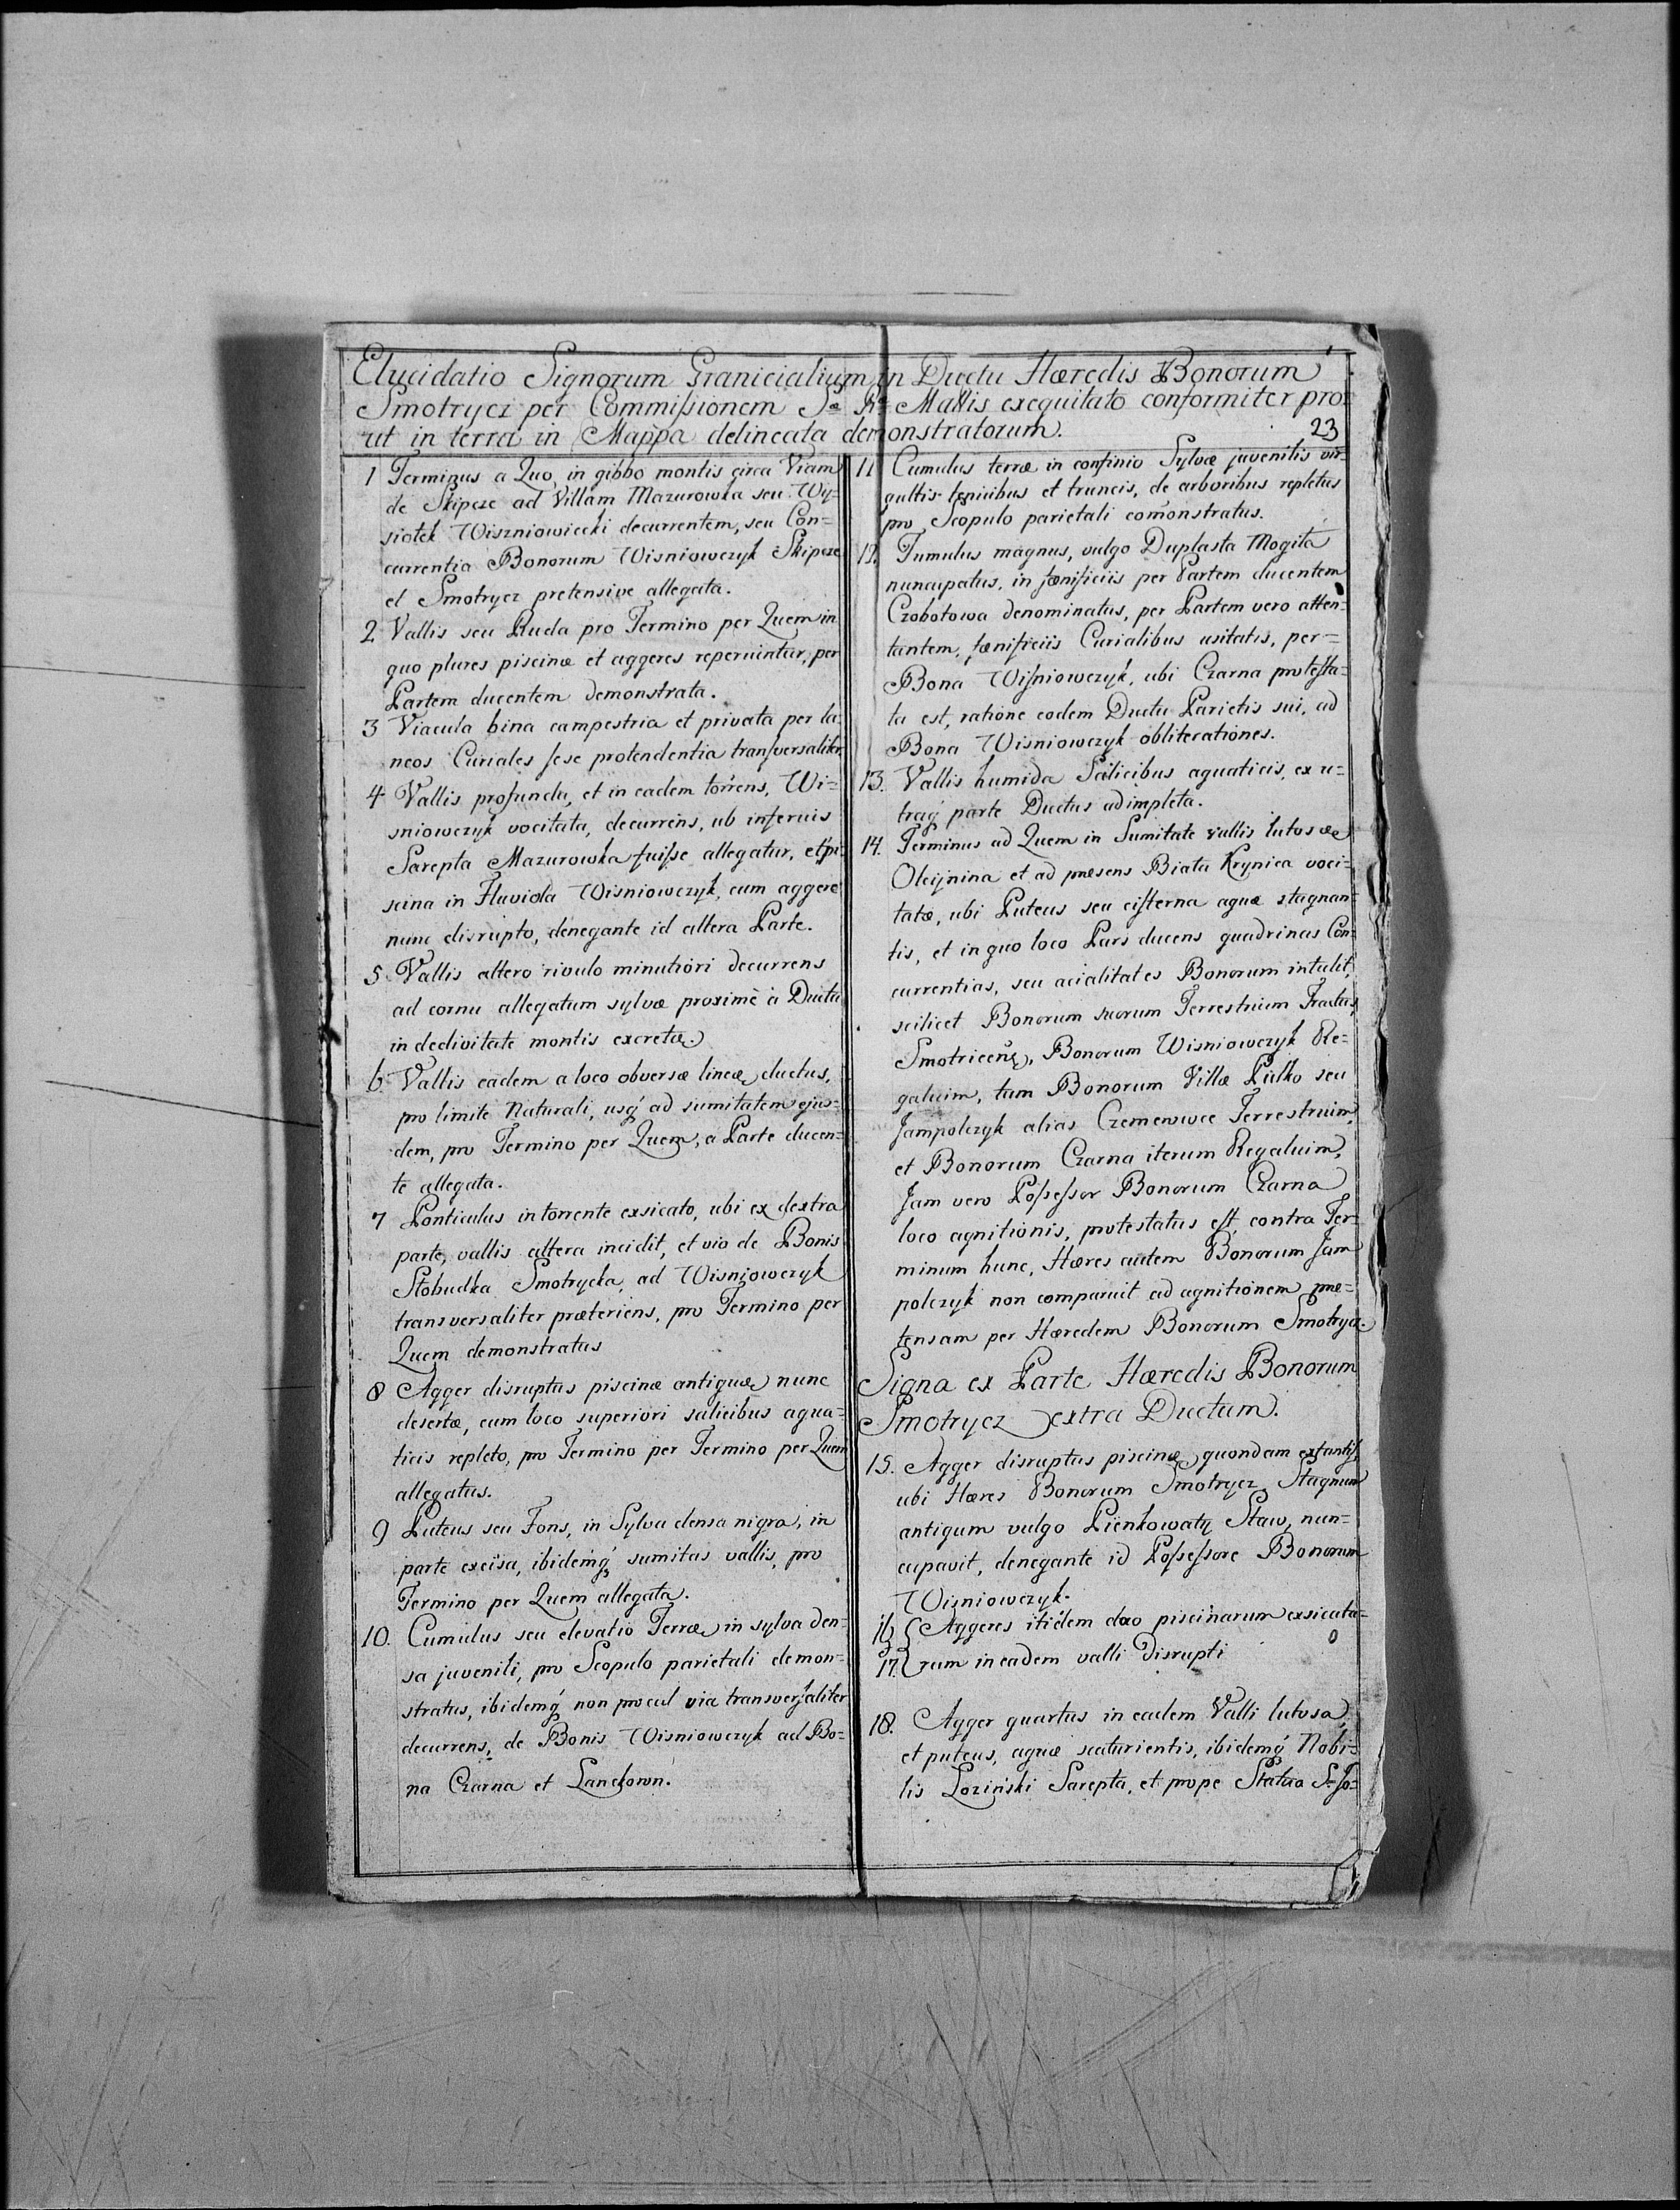 Elucidatio Signorum Granicialium in Ductu Hæredis Bonorum
Smotrycz per Commissionem Sæ Ræ Mattis exequitato conformiter pro
ut in terra in Mappa delineata demonstratorum.
23
1 Terminus a Quo, in gibbo montis circa Viam
de Skipcze ad Villam Mazurowka seu Wy=
siolek Wiszniowiecki decurrentem, seu Con=
currentia Bonorum Wisniowczyk Skipcze
et Smotrycz pretensive allegata.
2 Vallis seu Ruda pro Termino per Quem in
quo plures piscinæ et aggeres reperiuntur, per
Partem ducentem demonstrata.
3 Viacula bina campestria et privata per la
neos Curiales sese protendentia transversaliter
4 Vallis profunda, et in eadem torrens, Wi=
sniowczyk vocitata, decurrens, ub inferius
Sarepta Mazurowka fuisse allegatur, et pi
scina in Fluviola Wisniowczyk, cum aggere
nunc disrupto, denegante id altera Parte.
5 Vallis altero rivulo minutiori decurrens
ad cornu allegatum sylvæ proximè a Ductu
in declivitate montis excretæ.
6. Vallis eadem a loco obversæ lineæ ductus,
pro limite Naturali, usq́ ad sumitatem ejus=
dem, pro Termino per Quem, a Parte ducen=
te allegata.
7 Ponticulus in torrente exsicato, ubi ex dextra
parte, vallis altera incidit, et via de Bonis
Slobudka Smotrycka, ad Wisniowczyk
transversaliter præteriens, pro Termino per
Quem demonstratus
8 Agger disruptus piscinæ antiquæ nunc
desertæ, cum loco superiori salicibus aqua=
ticis repleto, pro Termino per Termino per Quem
allegatus.
9 Puteus seu Fons, in Sylva densa nigra, in
parte excisa, ibidemq́ sumitas vallis, pro
Termino per Quem allegata.
10. Cumulus seu elevatio Terræ in sylva den=
sa juvenili, pro Scopulo parietali demon=
stratus, ibidemq́ non procul via transversaliter
decurrens, de Bonis Wisniowczyk ad Bo=
na Czarna et Lanckown.
11 Cumulus terræ in confinio Sylvæ juvenilis vir=
gultis et truncis, de arboribus repletus
pro Scopulo parietali com̃onstratus.
12. Tumulus magnus, vulgo Duplasta Mogiła
nuncupatus, in fœnificiis per Partem ducentem
Czobotowa denominatus, per Partem vero atten=
tantem, fœnificiis Curialibus usitatis, per=
Bona Wisniowczyk, ubi Czarna protesta=
ta est, ratione eodem Ductu Parietis sui, ad
Bona Wisniowczyk obliterationes.
13. Vallis humida Salicibus aquaticis, ex u=
traq́ parte Ductus adimpleta.
14. Terminus ad Quem in Sumitate vallis lutosæ
Oleijnina et ad præsens Biała Krynica voci=
tatæ, ubi Puteus seu cisterna aquæ stagnan=
tis, et in quo loco Pars ducens quadrinas Con=
currentias, seu acialitates Bonorum intulit,
scilicet Bonorum suorum Terrestrium Tractus
Smotricens, Bonorum Wisniowczyk Re=
galium, tum Bonorum Villæ Pulko seu
Jampolczyk alias Czemerowce Terrestrium,
et Bonorum Czarna iterum Regalium,
Jam vero Possessor Bonorum Czarna
loco agnitionis, protestatus est contra Ter=
minum hunc, Hæres autem Bonorum Jam
polczyk non comparuit ad agnitionem præ=
tensam per Hæredem Bonorum Smotrycz.
Signa ex Parte Hæredis Bonorum
Smotrycz extra Ductum.
15. Agger disruptus piscinæ quondam extantis,
ubi Hæres Bonorum Smotrycz, Stagnum
antiqum vulgo Pienkowaty Staw, nun=
cupavit, denegante id Possessore Bonorum
Wisniowczyk.
16 { Aggeres itidem duo piscinarum exsicata=
17. rum in eadem valli disrupti
18. Agger quartus in eadem Valli lutosa,
et puteus, aquæ scaturientis, ibidemq́ Nobi=
lis Loziński Sarepta, et prope Statua S. Jo=